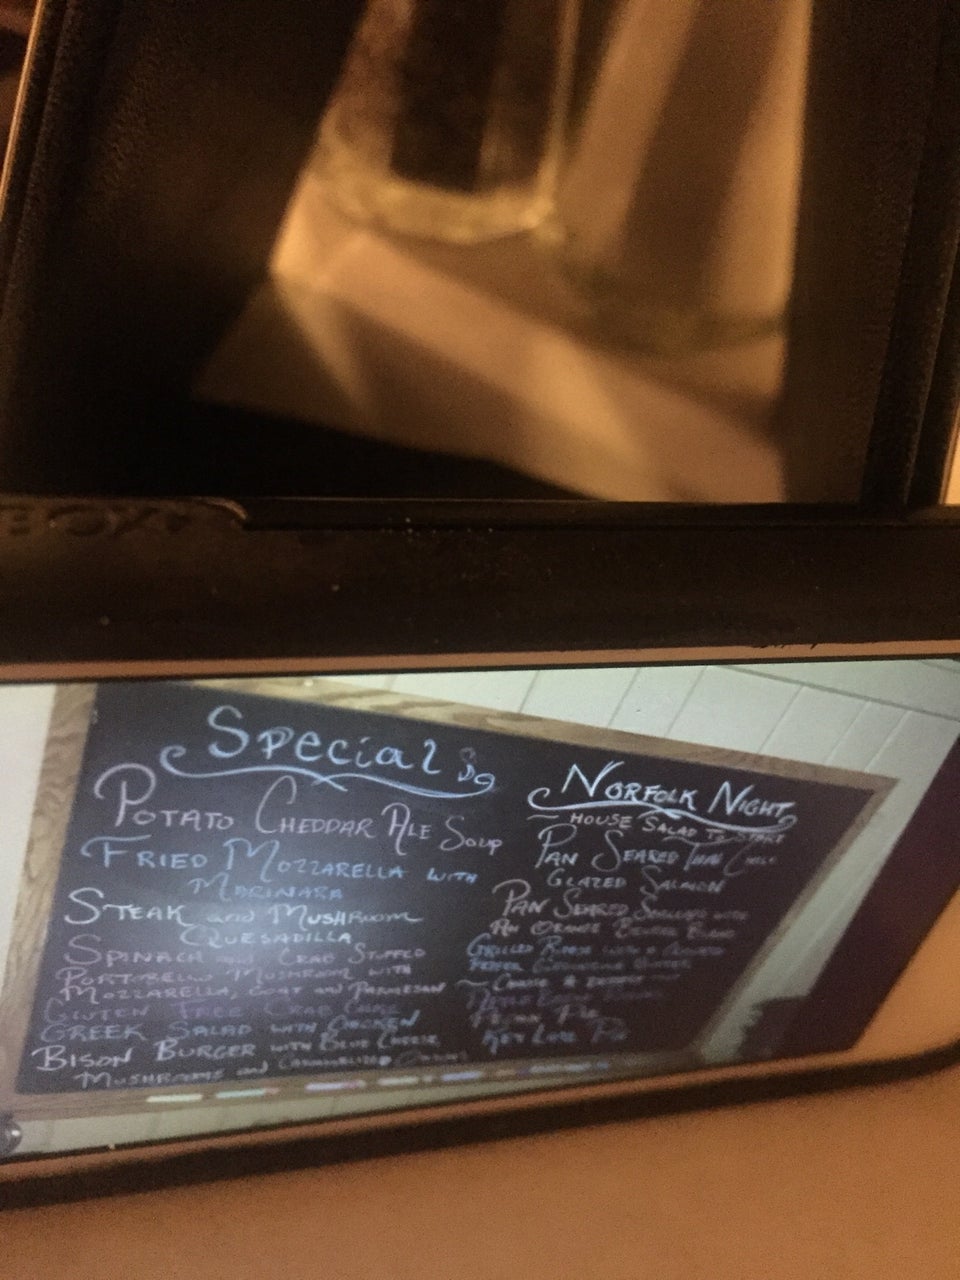 Specials
Potato Cheddar Ale Soup
Fried Mozzarella with
Marinara
Steak and Mushroom
Quesadilla
Spinach and Crab Stuffed
Portobello Mushroom with
Mozzarella, Goat and Parmesan
Gluten Free Crab Cake
Greek Salad with Chicken
Bison Burger with Blue Cheese
Mushrooms and Caramelized Onions
Norfolk Night
House Salad to Start
Pan Seared Thai Chili
Glazed Salmon
Pan Seared with
An Orange
Grilled with a
Pepper
~ Choice of
Pie
Key Lime Pie